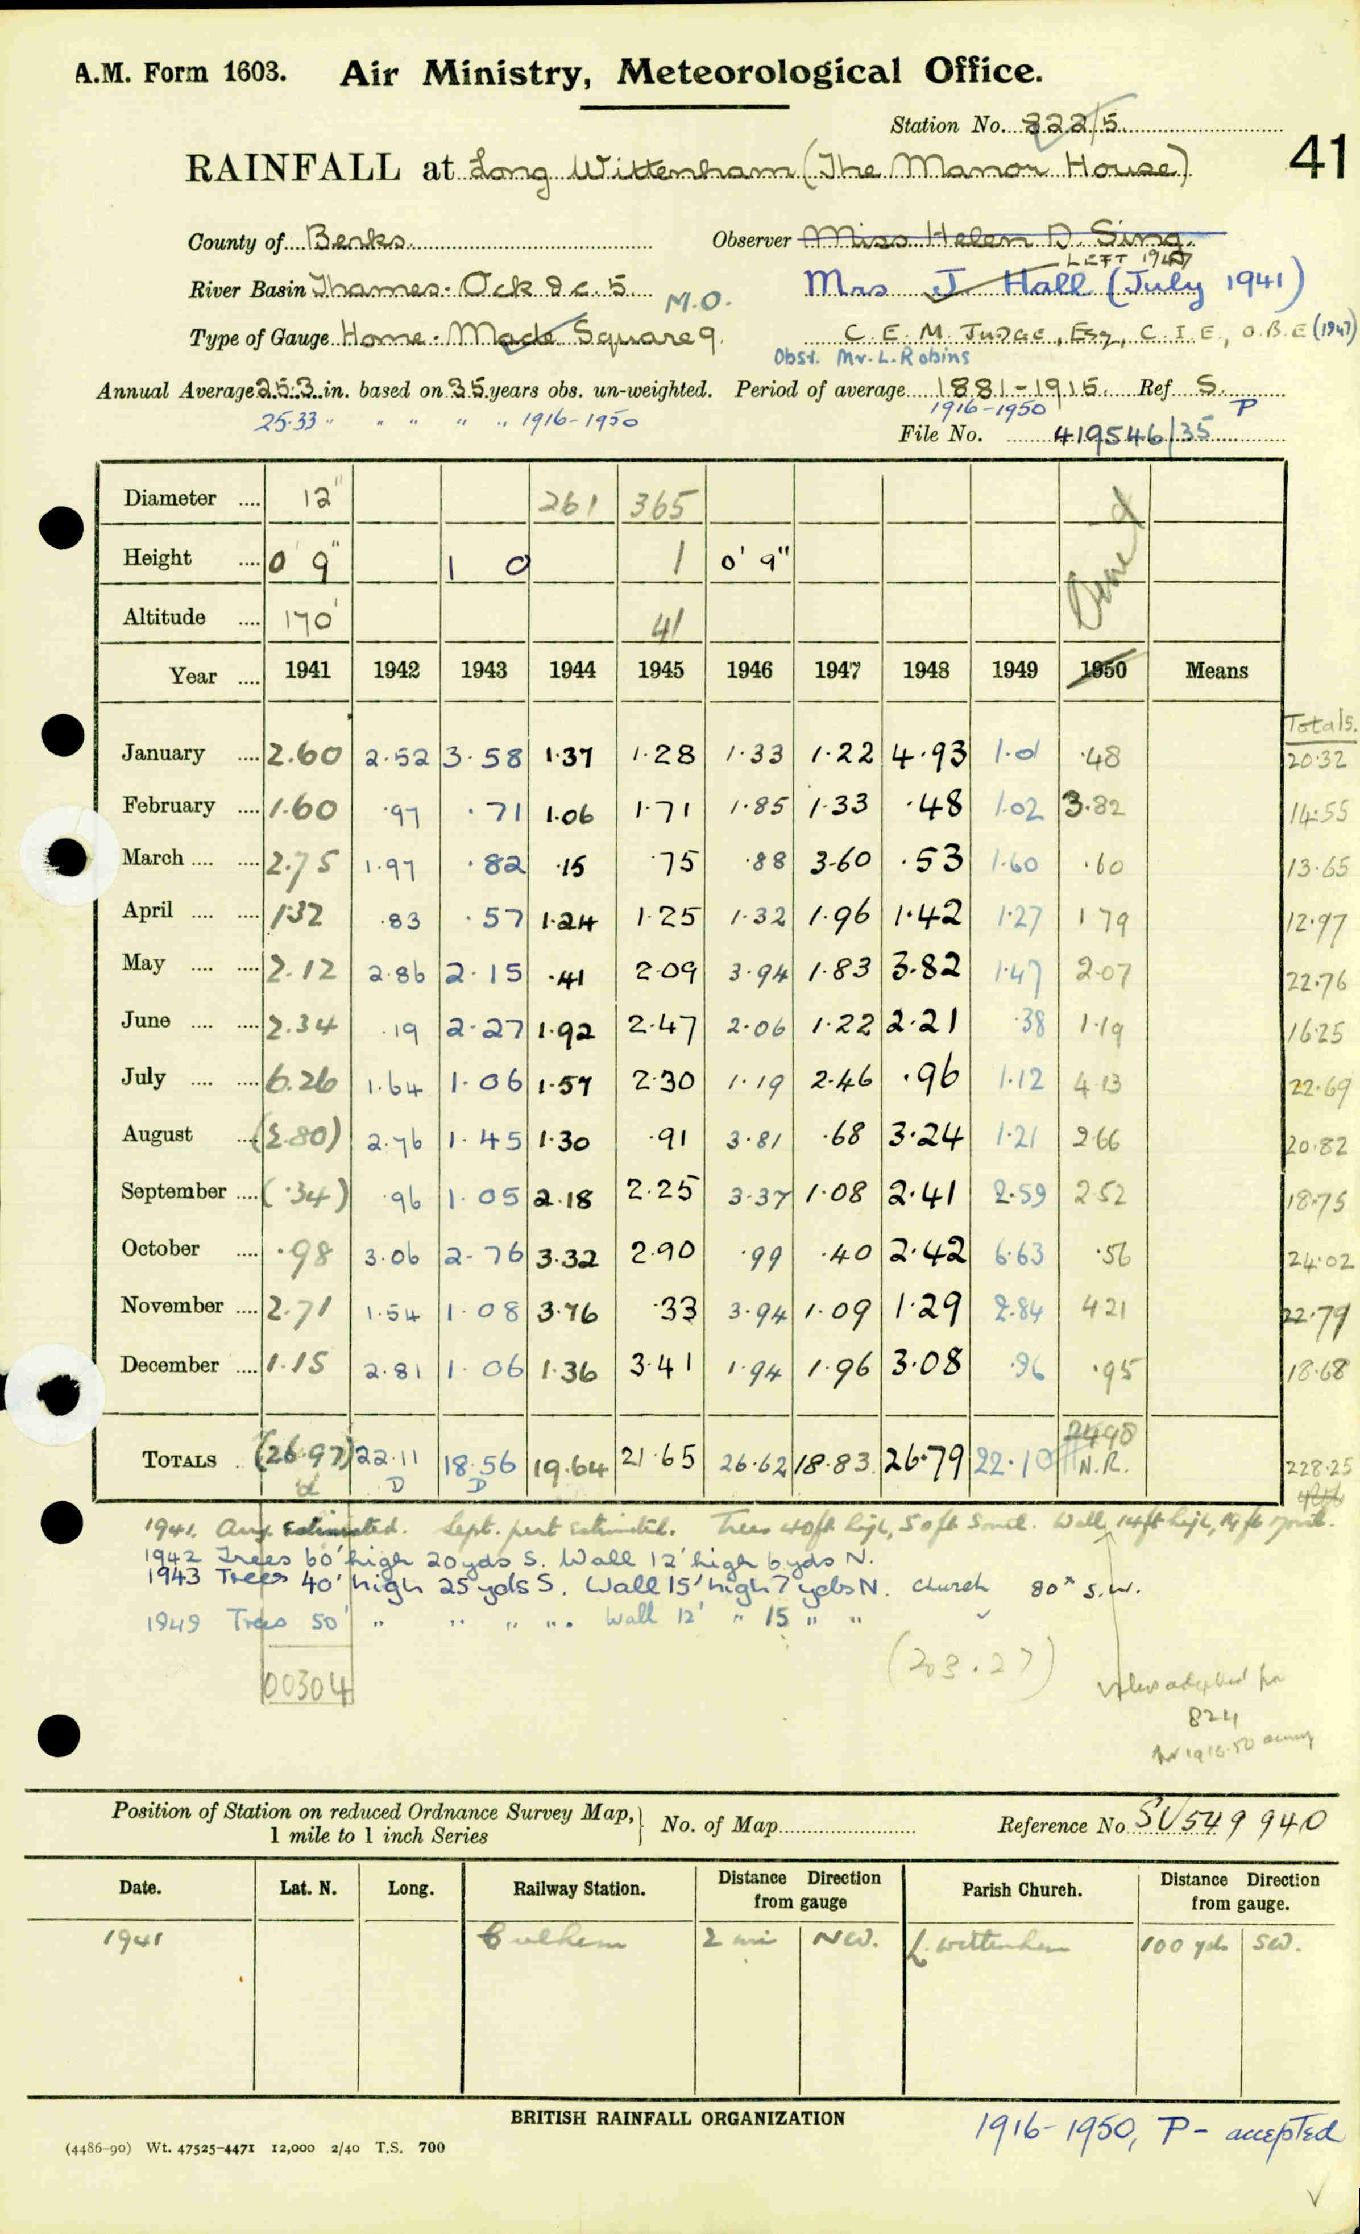 A.M. Form 1603. Air Ministry, Meteorological Office.
Station No. 222/5
RAINFALL at Long Wittenham (The Manor House) 41
County of Berks. Observer Miss Helen D. Sing.
LEFT 1947
River Basin Thames. Ock &c. 5 M.O. Mrs J. Hall (July 1941)
Type of Gauge Home-Made Square 9. C. E. M. Judge, Esq, C.I.E., O.B.E (1947)
Obsr. Mr. L. Robins
Annual Average 25.3 in. based on 35 years obs. un-weighted. Period of average 1881-1915. Ref S.
25.33 " " " " " 1916-1950 1916-1950 P
File No. 419546/35
Diameter .... 12" 261 365
Height .... 0' 9" 1 0 1 0' 9"
Altitude .... 170' 41
Year .... 1941 1942 1943 1944 1945 1946 1947 1948 1949 1950 Means
Totals.
January .... 2.60 2.52 3.58 1.37 1.28 1.33 1.22 4.93 1.01 .48 20.32
February .... 1.60 .97 .71 1.06 1.71 1.85 1.33 .48 1.02 3.82 14.55
March .... .... 2.75 1.97 .82 .15 .75 .88 3.60 .53 1.60 .60 13.65
April .... .... 1.32 .83 .57 1.24 1.25 1.32 1.96 1.42 1.27 1 79 12.97
May .... .... 2.12 2.86 2.15 .41 2.09 3.94 1.83 3.82 1.47 2.07 22.76
June .... .... 2.34 .19 2.27 1.92 2.47 2.06 1.22 2.21 .38 1.19 16.25
July .... .... 6.26 1.64 1.06 1.57 2.30 1.19 2.46 .96 1.12 4.13 22.69
August .... (2.80) 2.76 1.45 1.30 .91 3.81 .68 3.24 1.21 2.66 20.82
September .... (.34) .96 1.05 2.18 2.25 3.37 1.08 2.41 2.59 2.52 18.75
October .... .98 3.06 2.76 3.32 2.90 .99 .40 2.42 6.63 .56 24.02
November .... 2.71 1.54 1.08 3.76 .33 3.94 1.09 1.29 2.84 4 21 22.79
December .... 1.15 2.81 1.06 1.36 3.41 1.94 1.96 3.08 .96 .95 18.68
24.98
TOTALS .. (26.97) 22.11 18.56 19.64 21.65 26.62 18.83 26.79 22.10 N.R. 228.25
D D
1941. Aug. estimated. Sept. part estimated. Trees 40ft high, 50ft South. Wall 14ft high, 19ft North.
1942 Trees 60' high 20yds S. Wall 12' high 6yds N.
1943 Trees 40' high 25yds S. Wall 15' high 7 yds N. Church 80x S.W.
1949 Trees 50' " " " ". Wall 12' " 15 " "
(203.27)
00304
824
Position of Station on reduced Ordnance Survey Map,
1 mile to 1 inch Series
No. of Map Reference No SU549 940
Date. Lat. N. Long. Railway Station. Distance Direction from gauge Parish Church. Distance Direction from gauge.
1941 Culham 2 mi NW. L. Wittenham 100 yds SW.
BRITISH RAINFALL ORGANIZATION
1916-1950, P- accepted
(4486-90) Wt. 47525-4471 12,000 2/40 T.S. 700